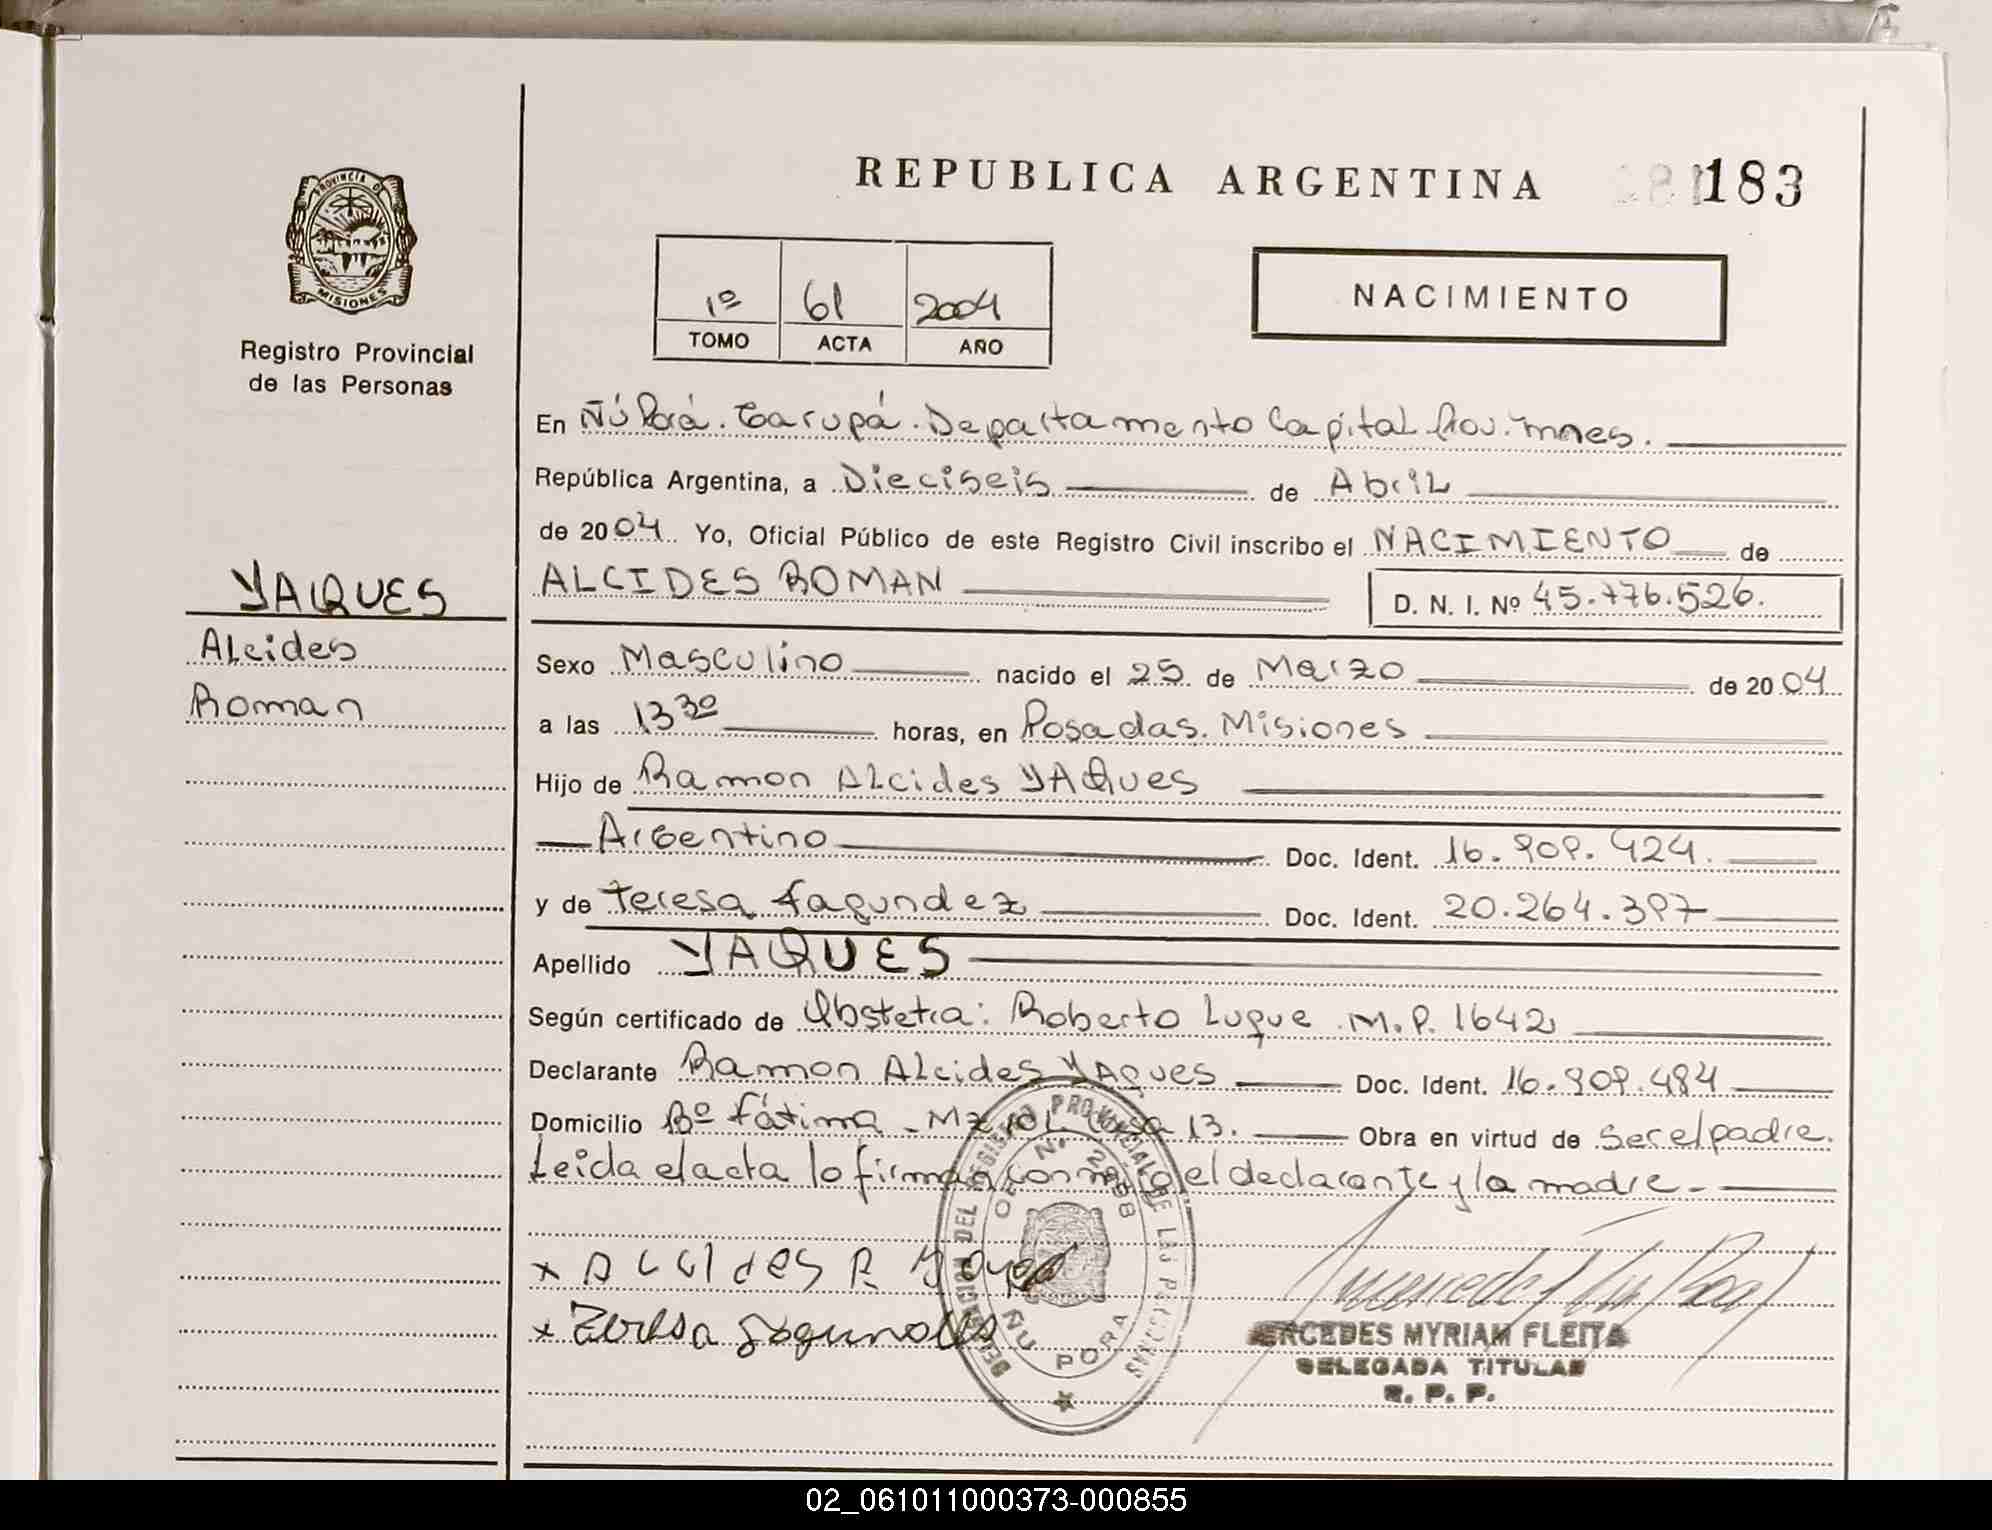 REPUBLICA ARGENTINA 183
PROVINCIA DE
MISIONES
Registro Provincial
de las Personas
1º 61 2004
TOMO ACTA AÑO
NACIMIENTO
En Ñú Porá. Garupá. Departamento Capital Prov. Mnes.
República Argentina, a Dieciseis de Abril
de 2004 Yo, Oficial Público de este Registro Civil inscribo el NACIMIENTO de
ALCIDES ROMAN D. N. I. Nº 45.776.526.
YAQUES
Alcides
Roman
Sexo Masculino nacido el 25 de Marzo de 2004
a las 13 30 horas, en Posadas. Misiones
Hijo de Ramon Alcides YAQues
Argentino Doc. Ident. 16.909.424.
y de Teresa Fagundez Doc. Ident. 20.264.397
Apellido YAQUES
Según certificado de Obstetra: Roberto Luque M.P. 1642
Declarante Ramon Alcides YAques Doc. Ident. 16.909.484
Domicilio Bº Fátima - Mz Casa 13. Obra en virtud de ser el padre.
Leida el acta lo firman conmigo el declarante y la madre.
x Alcides R Yaques
x Teresa Fagundes
DELEGACION DEL REGISTRO PROVINCIAL DE LAS PERSONAS
OF. Nº 2998
ÑU PORA
MERCEDES MYRIAM FLEITA
DELEGADA TITULAR
R. P. P.
02_061011000373-000855